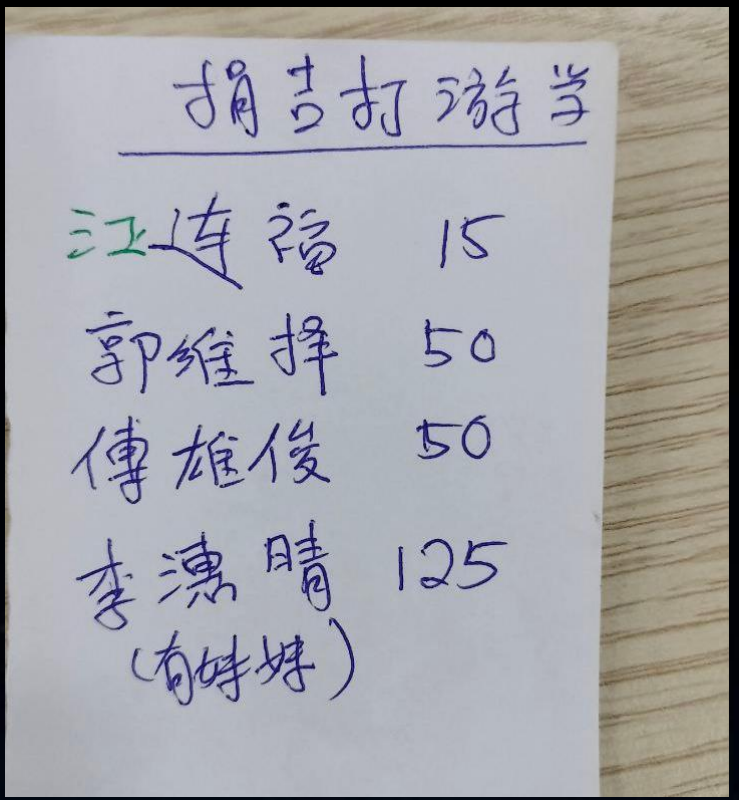 捐吉打游学
江连福 15
郭维择 50
傅雄俊 50
李漶晴 125
(有妹妹)